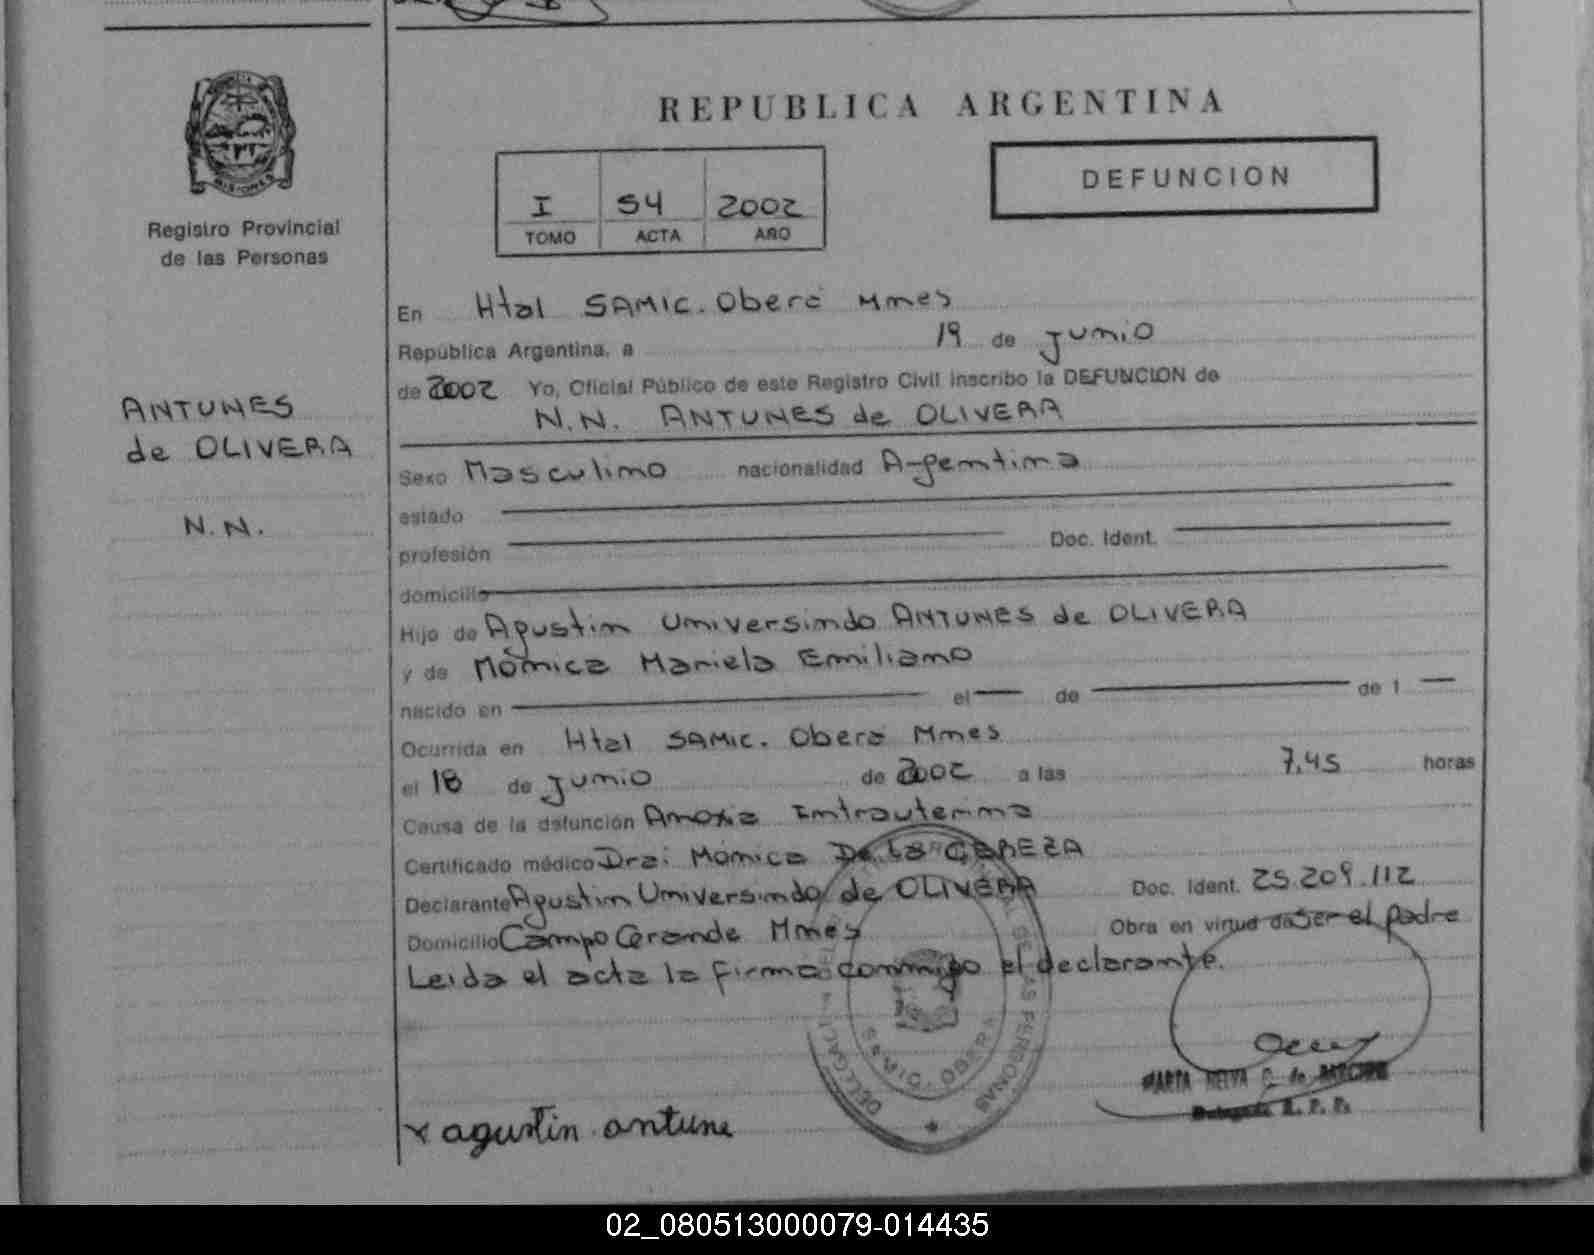 REPUBLICA ARGENTINA
DEFUNCION
I 54 2002
TOMO ACTA AÑO
MISIONES
Registro Provincial
de las Personas
ANTUNES
de OLIVERA
N.N.
En Htal SAMIC. Oberá Mnes
República Argentina, a 19 de junio
de 2002 Yo, Oficial Público de este Registro Civil inscribo la DEFUNCION de
N.N. ANTUNES de OLIVERA
Sexo Masculino nacionalidad Argentina
estado
profesión Doc. Ident.
domicilio
Hijo de Agustin Universindo ANTUNES de OLIVERA
y de Mónica Mariela Emiliano
nacido en el de de 1
Ocurrida en Htal SAMIC. Oberá Mnes
el 18 de junio de 2002 a las 7,45 horas
Causa de la defunción Anoxia Intrauterina
Certificado médico Dra: Mónica De la CABEZA
Declarante Agustin Universindo de OLIVERA Doc. Ident. 25.209.112
Domicilio Campo Grande Mnes Obra en virtud de Ser el padre
Leida el acta la firma conmigo el declarante.
SAMIC. OBERA
x agustin antune
MARTA NELVA C. de
Delegada R. P. P.
02_080513000079-014435